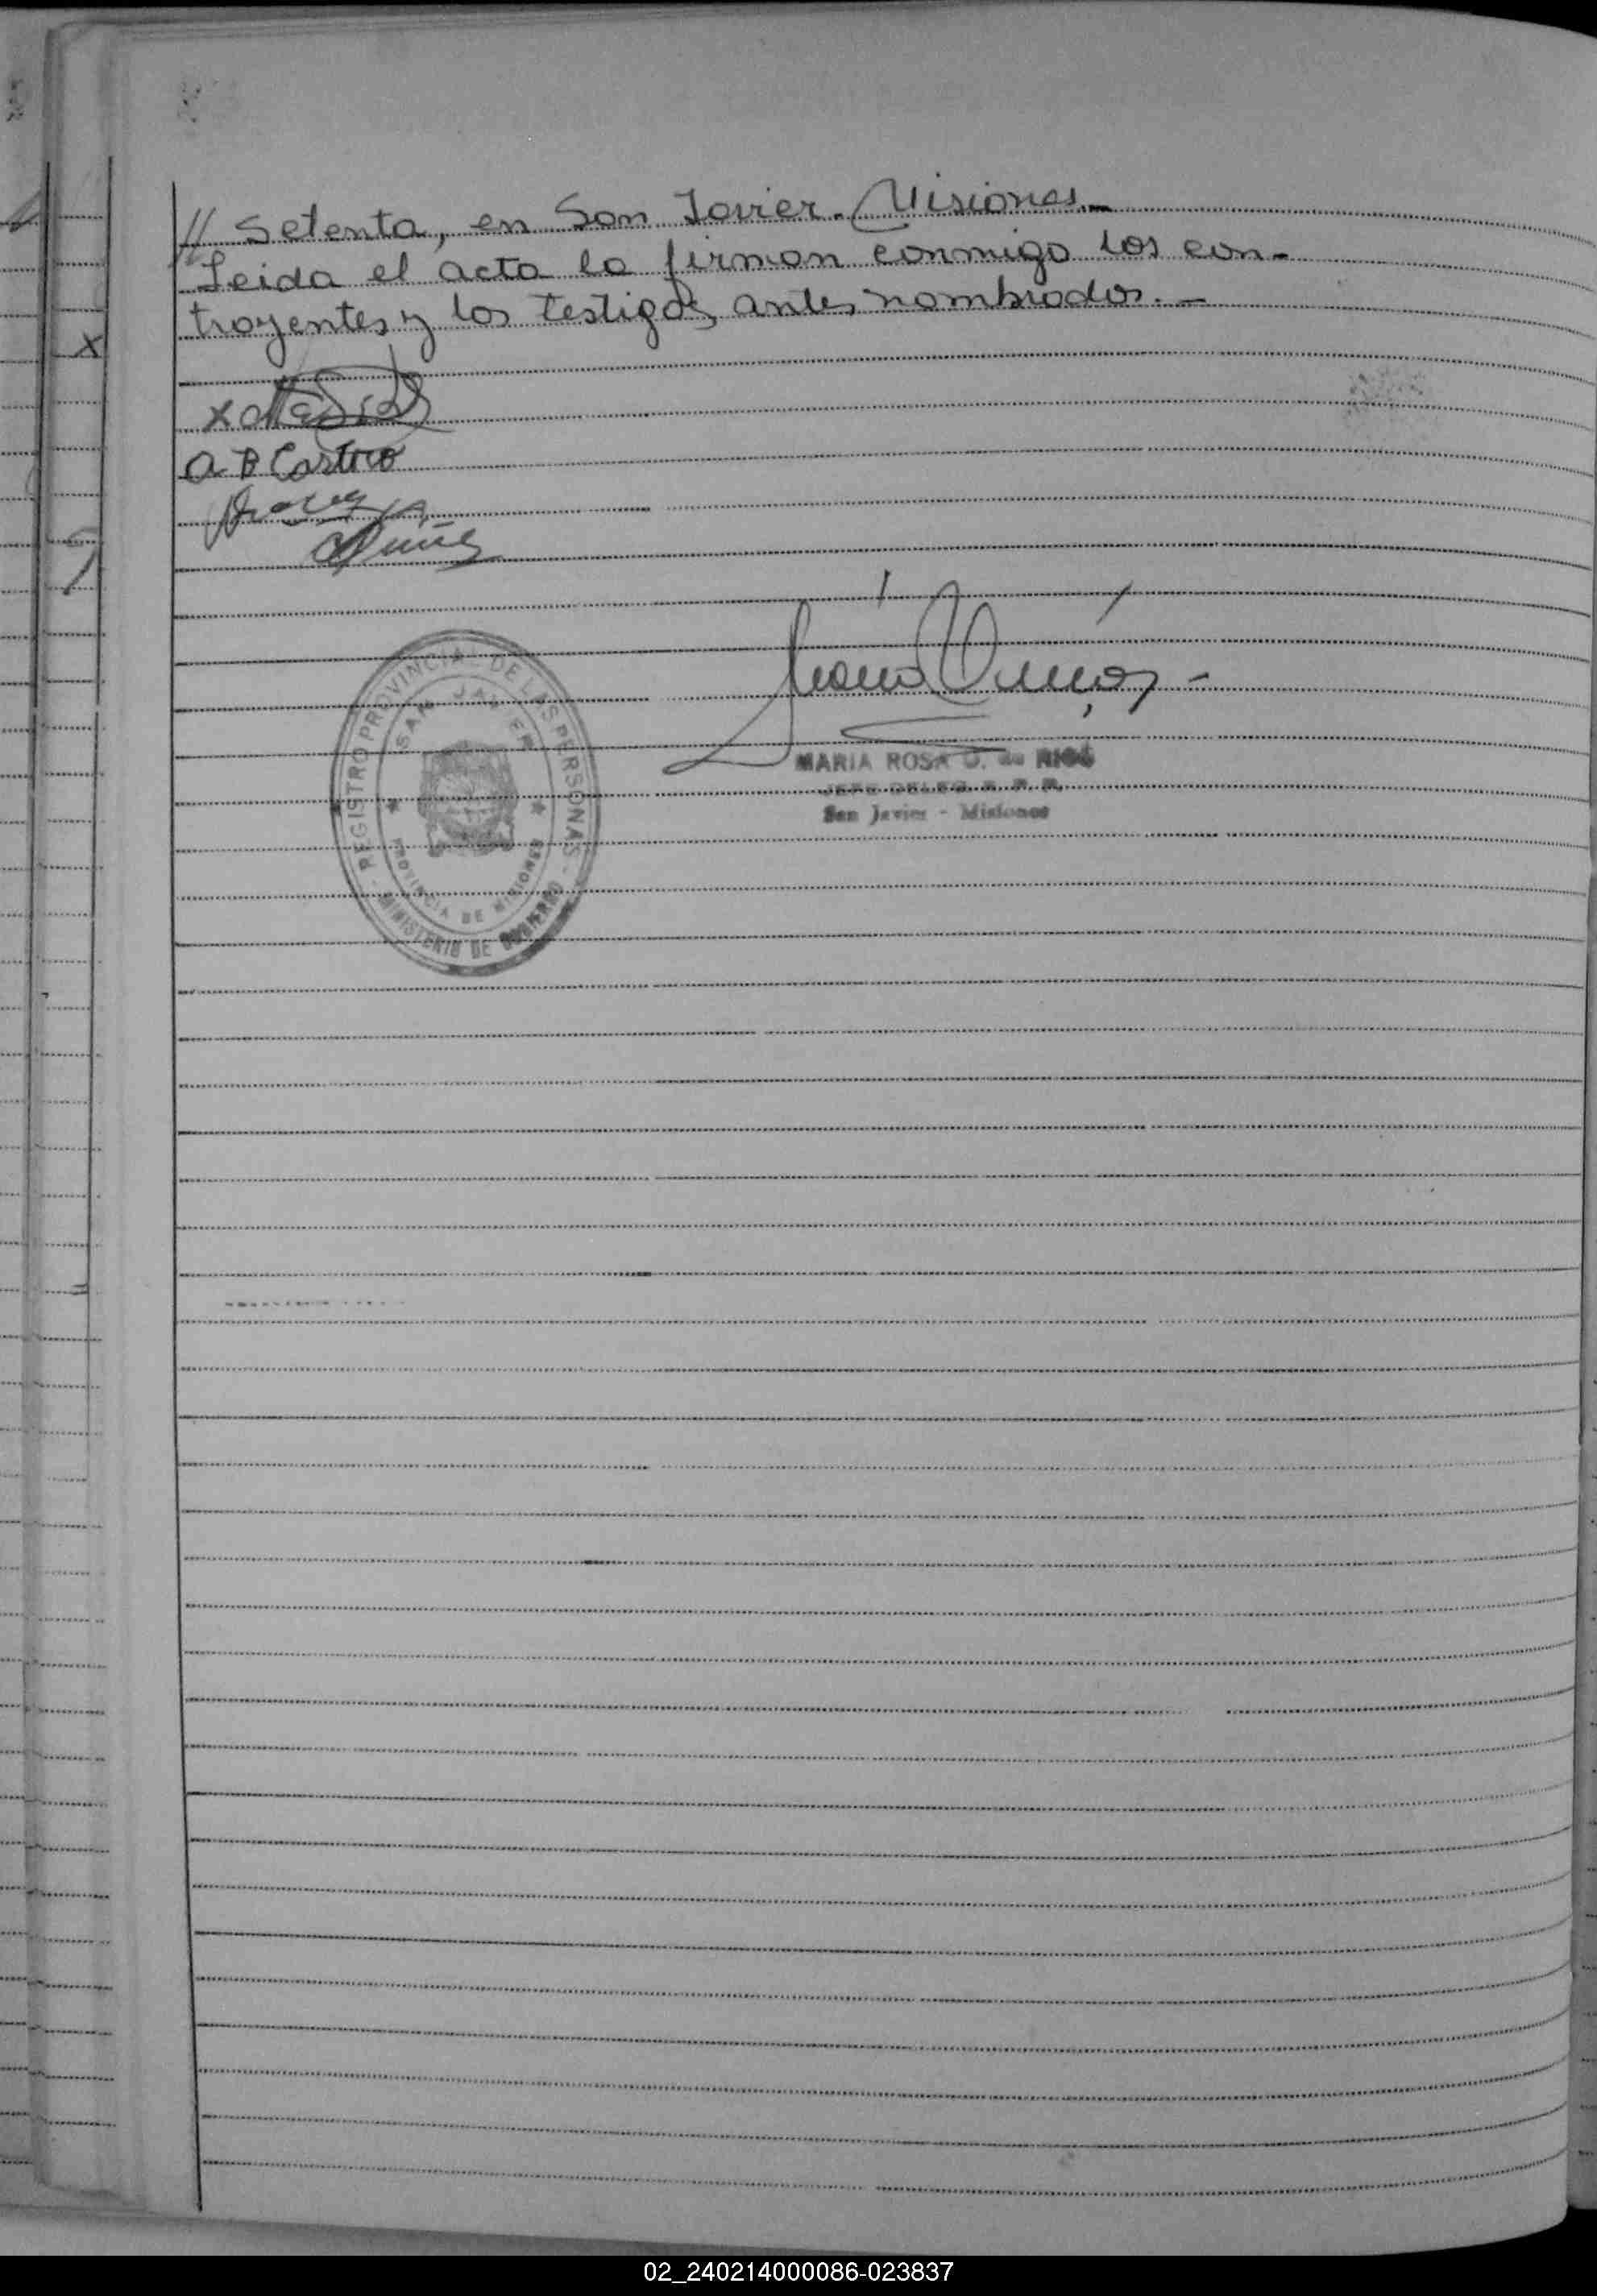 // Setenta, en San Javier. Misiones.-
Leida el acta la firman conmigo los con-
trayentes y los testigos antes nombrados.-
x
A B Castro
REGISTRO PROVINCIAL DE LAS PERSONAS
SAN JAVIER
PROVINCIA DE MISIONES
MINISTERIO DE GOBIERNO
MARIA ROSA O. de RIOS
JEFE DELEG. R. P. P.
San Javier - Misiones
x
02_240214000086-023837